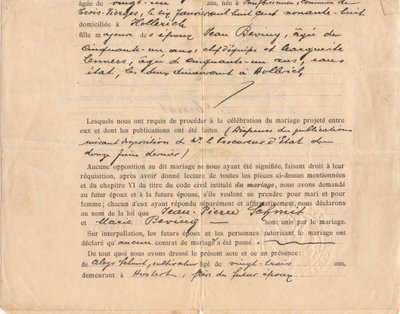 âgée de vingt-un ans, née à commune de
Trois-Vierges, le six Janvier mil huit cent nonante-huit
domiciliée à Hollerich
fille majeure des époux Jean Beving, âgé de
cinquante-un ans, chef d'équipe et Marguerite
Lenners, âgée de cinquante-un ans sans
état, les deux demeurant à Hollerich
Lesquels nous ont requis de procéder à la célébration du mariage projeté entre
eux et dont les publications ont été faites (Dispense des publications
suivant disposition de Mr. le Procureur d'Etat du
douze juin dernier)
Aucune opposition au dit mariage ne nous ayant été signifiée, faisant droit à leur
réquisition, après avoir donné lecture de toutes les pièces ci-dessus mentionnées
et du chapitre VI du titre du code civil intitulé du mariage, nous avons demandé
au futur époux et à la future épouse, s'ils veulent se prendre pour mari et pour
femme; chacun d'eux ayant répondu séparément et affirmativement, nous déclarons
au nom de la loi que Jean-Pierre Schmit
Marie Beving sont unis par le mariage.
Sur interpellation, les futurs époux et les personnes autorisant le mariage ont
déclaré qu'aucun contrat de mariage a été passé.
De tout quoi nous avons dressé le présent acte et ce en présence:
de Aloys Schmit, cultivateur âgé de vingt-trois ans,
demeurant à Hostert, frère du futur époux